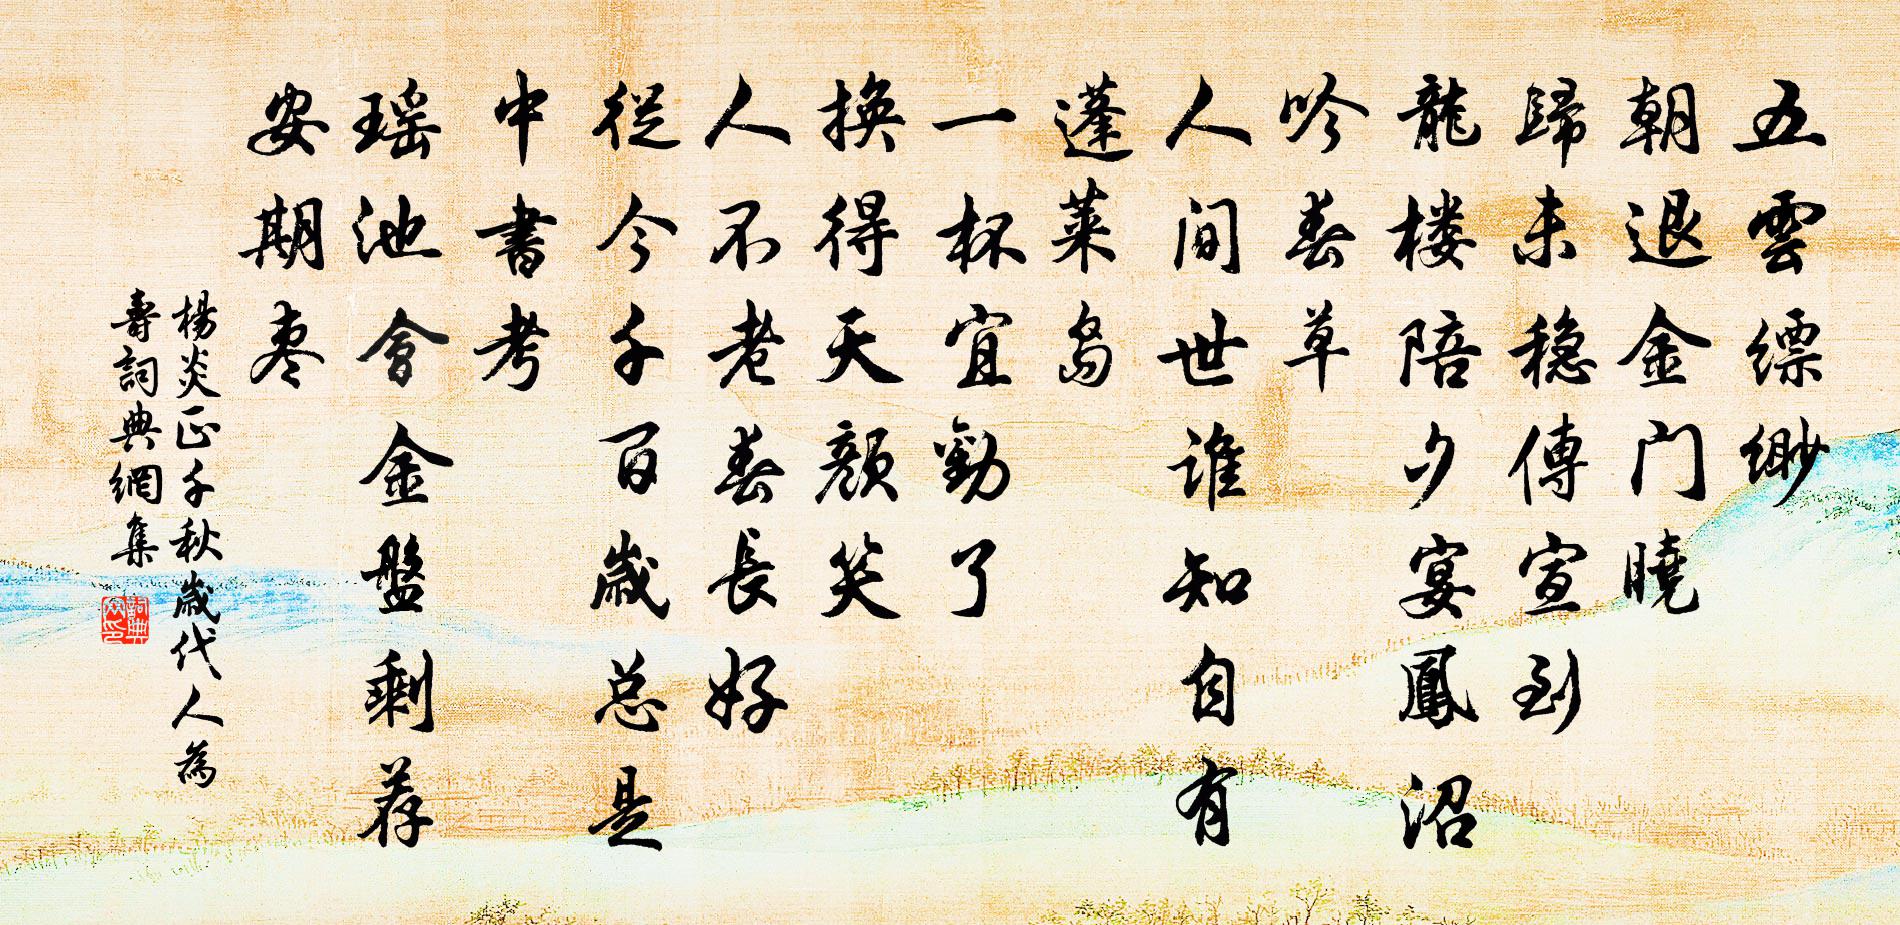 五雲縹緲
朝退金门曉
歸未穩傳宣到
龍楼陪夕宴鳳沼
吟春草
人间世谁知自有
蓬莱島
一杯宜勸了
換得天顏笑
人不老春長好
從今千百歲总是
中書考
瑶池會金盤剩荐
安期枣
楊炎正千秋歲代人為
壽詞典網集
詞典網印